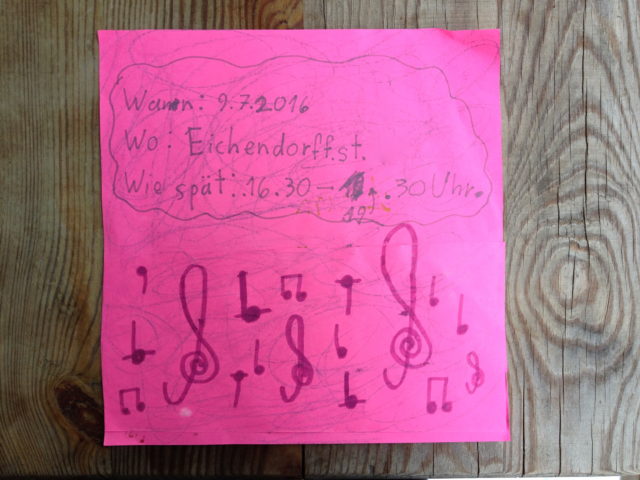 Wann: 9.7.2016
Wo: Eichendorffst.
Wie spät: 16.30 - 19.30 Uhr.